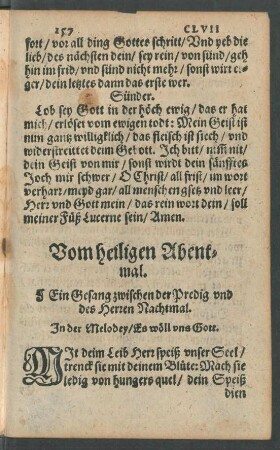 157 CLVII
fort / vor all ding Gottes schritt / Vnd yeb die
lieb / des nächsten dein / sey rein / von sünd / geh
hin im frid / vnd sünd nicht mehr / sonst wirt er
ger / dein letztes dann das erste wer.
Sünder.
Lob sey Gott in der höch ewig / das er hat
mich / erlöset vom ewigen todt: Mein Geist ist
nun gantz willigklich / das fleisch ist siech / vnd
widerstreittet deim Gebott. Ich bitt / nimm nit /
dein Geist von mir / sonst wirdt dein sänfftes
Joch mir schwer / O Christ / all frist / im wort
verharr / meyd gar / all menschen gsetz vnd leer /
Herr vnd Gott mein / das rein wort dein / soll
meiner Füß Lucerne sein / Amen.
Vom heiligen Abent-
mal.
Ein Gesang zwischen der Predig vnd
des Herren Nachtmal.
In der Melodey / Es wöll vns Gott.
MIt deim Leib Herr speiß vnser Seel /
trenck sie mit deinem Blüte: Mach sie
ledig von hungers quel / dein Speiß
dien